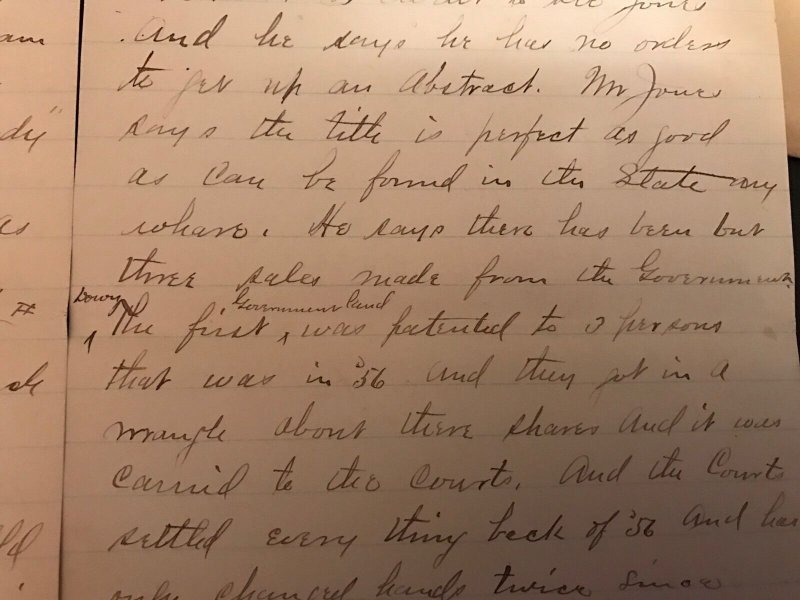 to see Jones
And he says he has no orders
to get up an Abstract. Mr Jones
says the title is perfect as good
as can be found in the State any
whare. He says there has been but
three sales made from the Government.
Down
Government land
The first was patented to 3 persons
that was in '56 And they got in a
wrangle about there shares And it was
Carried to the Courts. And the Courts
settled every thing back of '56 And has
only changed hands twice since
am
dy"
as
"#
ck
ld